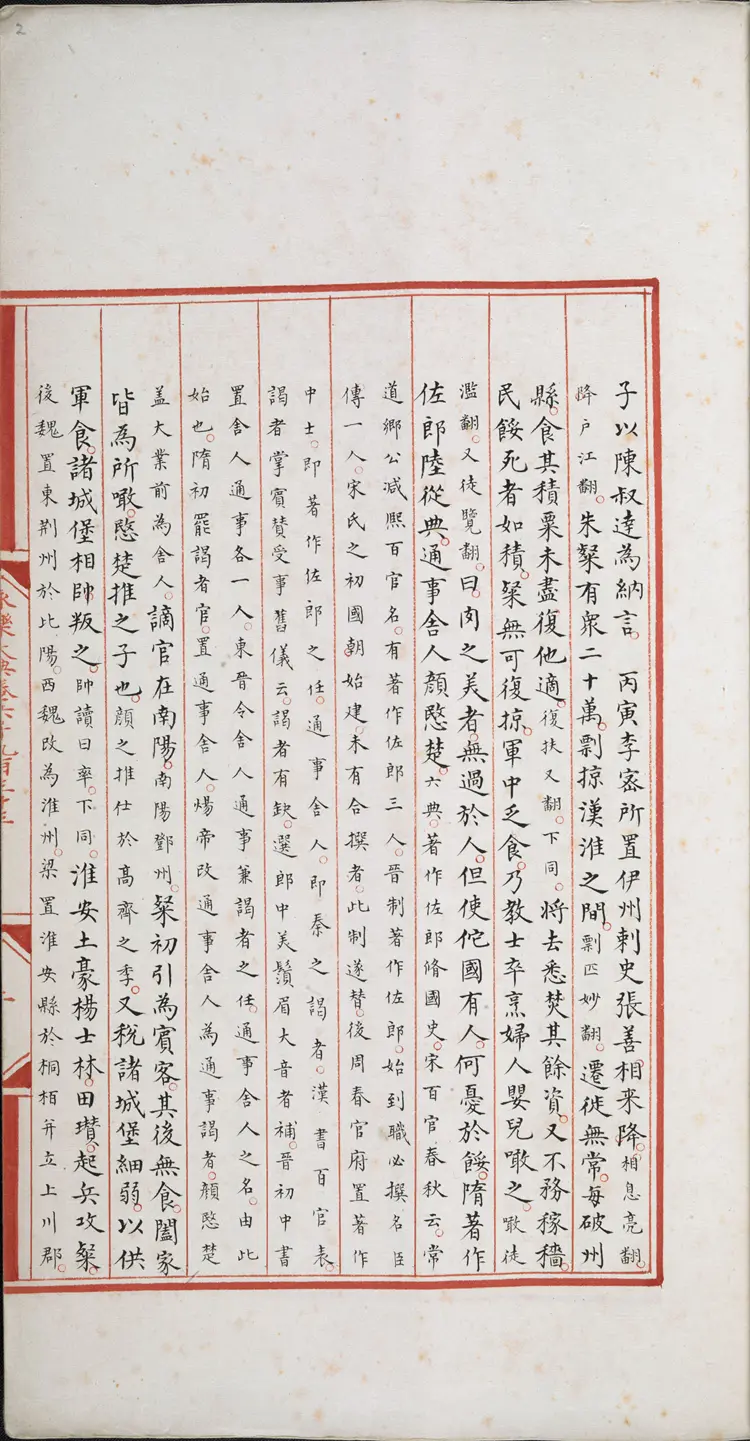 2
子以陳叔達為納言。 丙寅李宻所置伊州剌史張善相来降。相息亮翻。
降户江翻。朱粲有衆二十萬。剽掠漢淮之間。剽匹妙翻。遷徙無常。每破州
縣。食其積粟未盡復他適。復扶又翻。下同。將去悉焚其餘資。又不務稼穡。
民餒死者如積。粲無可復掠。軍中乏食。乃教士卒烹婦人嬰兒噉之。噉徒
濫翻。又徒覽翻。曰。肉之美者。無過於人。但使佗國有人。何憂於餒。隋著作
佐郎陸從典。通事舍人顏愍楚。六典。著作佐郎脩國史。宋百官春秋云。常
道鄉公減熙百官名。有著作佐郎三人。晉制著作佐郎。始到職必撰名臣
傳一人。宋氏之初國朝始建。未有合撰者。此制遂替。後周春官府置著作
中士。即著作佐郎之任。通事舍人。即秦之謁者。漢書百官表。
謁者掌賓贊受事舊儀云。謁者有缺。選郎中美鬚眉大音者補。晉初中書
置舍人通事各一人。東晉令舍人通事兼謁者之任。通事舍人之名。由此
始也。隋初罷謁者官。置通事舍人。煬帝改通事舍人為通事謁者。顏愍楚
盖大業前為舍人。謫官在南陽。南陽鄧州。粲初引為賓客。其後無食。闔家
皆為所噉。愍楚推之子也。顏之推仕於髙齊之季。又稅諸城堡細弱。以供
軍食。諸城堡相帥叛之。帥讀曰率。下同。淮安土豪楊士林。田瓚。起兵攻粲。
後魏置東荆州於比陽。西魏改為淮州。梁置淮安縣於桐栢并立上川郡。
永樂大典卷